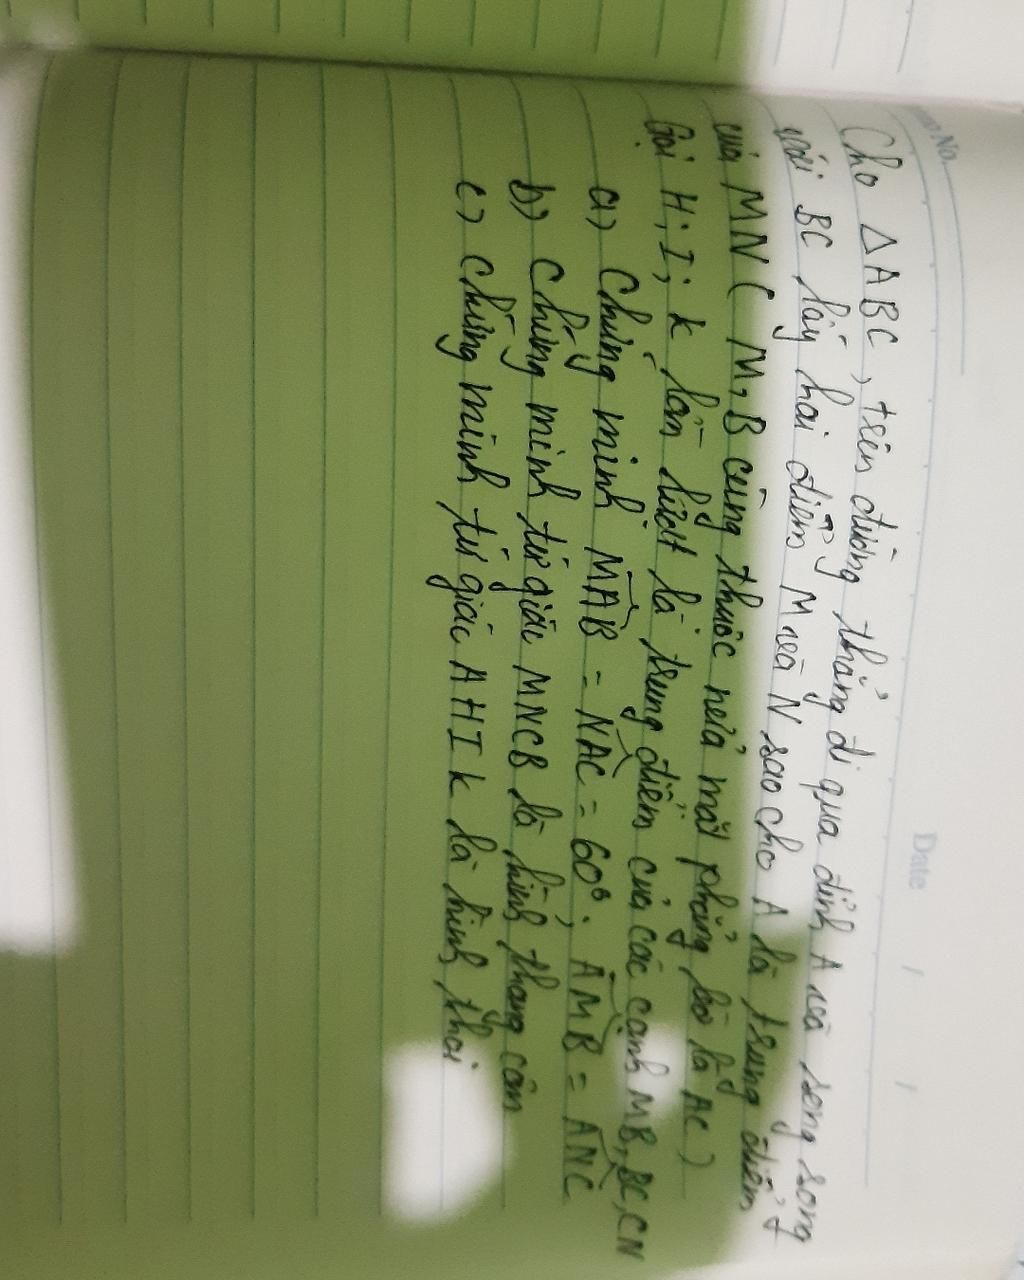 No.
Date / /
Cho ΔABC, trên đường thẳng đi qua đỉnh A và song song
với BC lấy hai điểm M và N sao cho A là trung điểm
của MN ( M, B cùng thuộc nửa mặt phẳng bờ là AC )
Gọi H; I; K lần lượt là trung điểm của các cạnh MB, BC, CN
a) Chứng minh MAB = NAC = 60°; AMB = ANC
b) Chứng minh tứ giác MNCB là hình thang cân
c) Chứng minh tứ giác AHIK là hình thoi